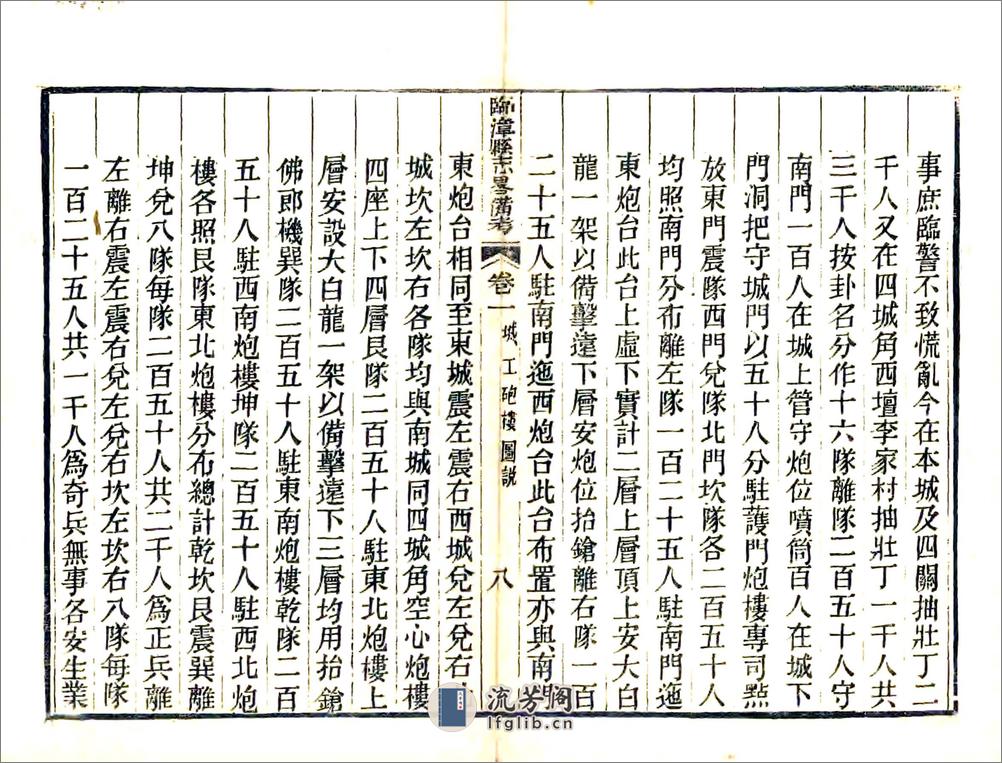 事庶臨警不致慌亂今在本城及四關抽壯丁二
千人又在四城角西壇李家村抽壯丁一千人共
三千人按卦名分作十六隊離隊二百五十人守
南門一百人在城上管守炮位噴筒百人在城下
門洞把守城門以五十人分駐護門炮樓專司㸃
放東門震隊西門兌隊北門坎隊各二百五十人
均照南門分布離左隊一百二十五人駐南門迤
東炮台此台上虛下實計二層上層頂上安大白
龍一架以備擊遠下層安炮位抬鎗離右隊一百
二十五人駐南門迤西炮台此台布置亦與南
臨漳縣志畧備考 卷一 城工砲樓圖說 八
東炮台相同至東城震左震右西城兌左兌右
城坎左坎右各隊均與南城同四城角空心炮樓
四座上下四層艮隊二百五十人駐東北炮樓上
層安設大白龍一架以備擊遠下三層均用抬鎗
佛郎機巽隊二百五十人駐東南炮樓乾隊二百
五十人駐西南炮樓坤隊二百五十人駐西北炮
樓各照艮隊東北炮樓分布總計乾坎艮震巽離
坤兌八隊每隊二百五十人共二千人爲正兵離
左離右震左震右兌左兌右坎左坎右八隊每隊
一百二十五人共一千人爲奇兵無事各安生業
流芳閣
lfglib.cn